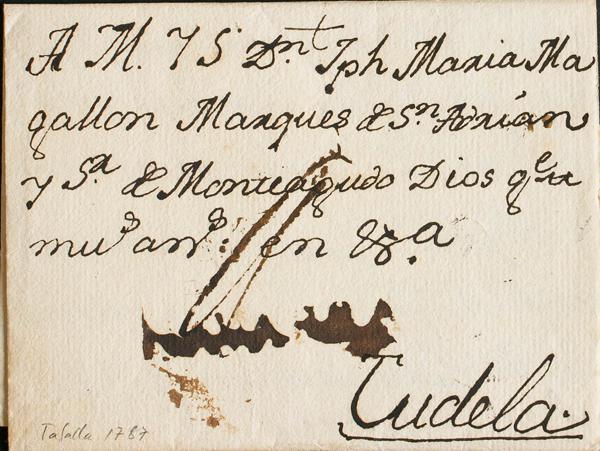 A M. Y S. Dn. Jph Maria Ma
gallon Marques de Sn. Adrian
y Sa. de Monteagudo Dios ge.
mus. ans. en &a.
Tudela.
Tafalla 1787